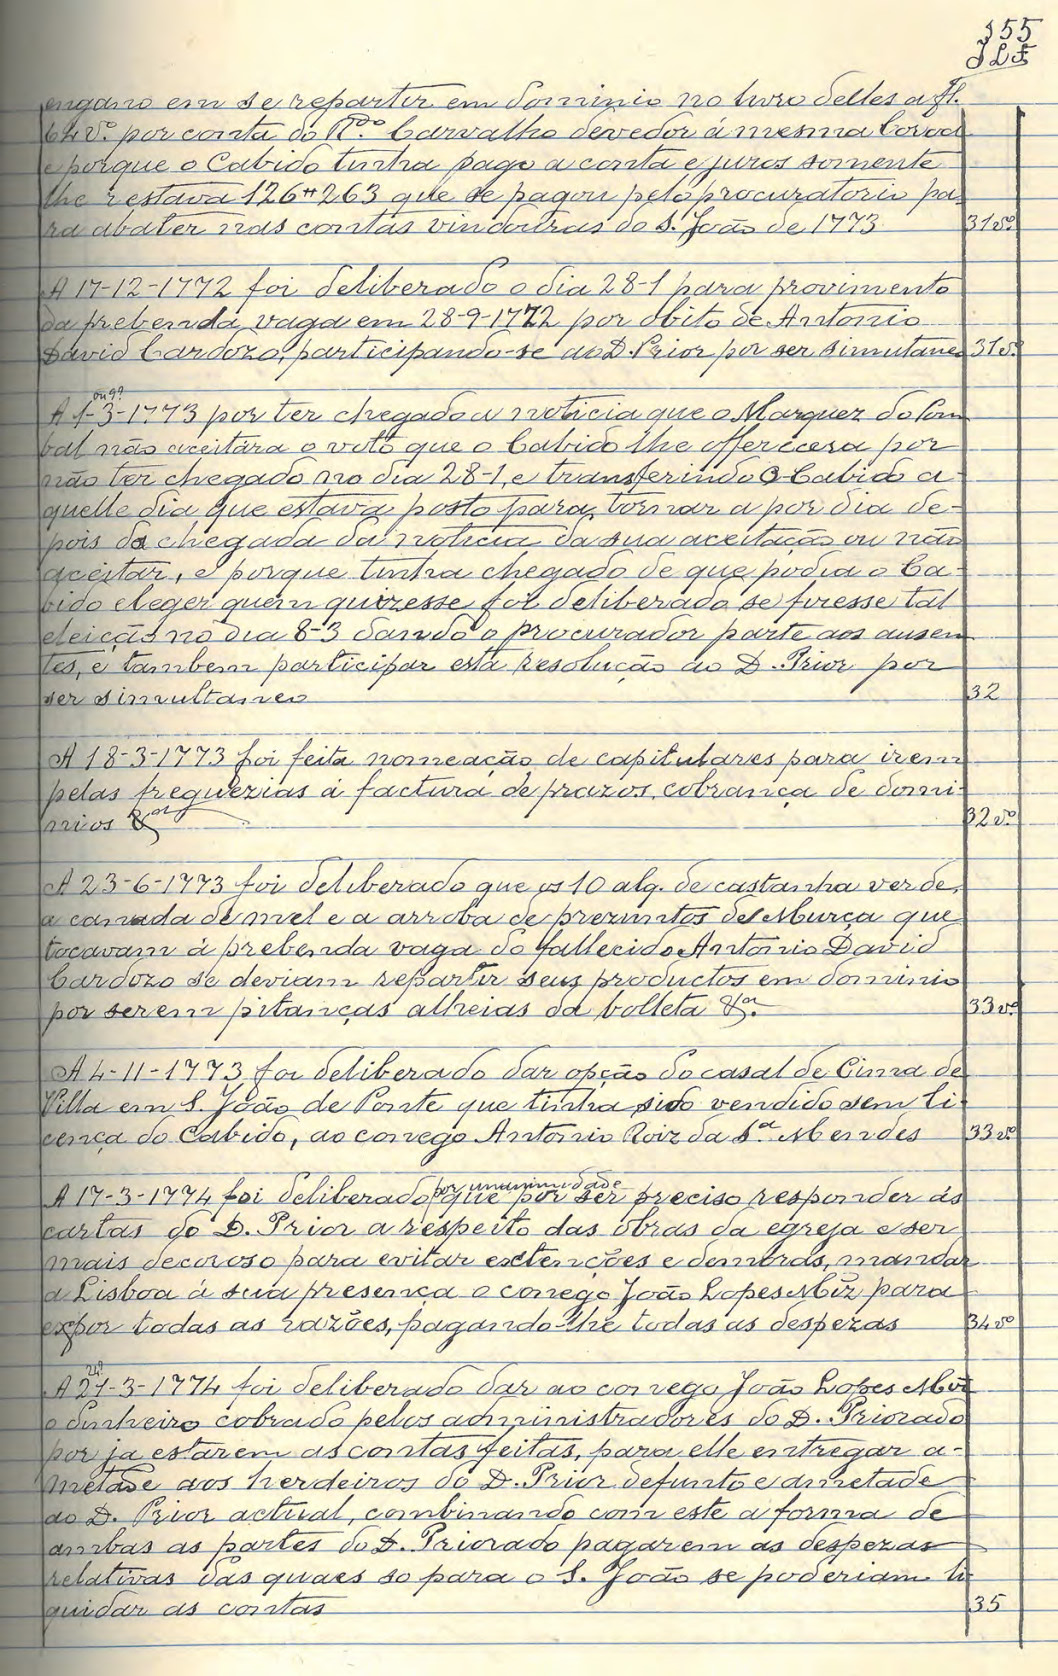 355
engano em se repartir em dominio no livro delles a fl.
64vº. por conta do Rdº. Carvalho devedor á mesma Coroa
e porque o Cabido tinha pago a conta e juros somente
lhe restava 126#263 que se pagou pelo procuratorio pa-
ra abater nas contas vindouras do S. João de 1773 31vº.
A 17-12-1772 foi deliberado o dia 28-1 para provimento
da prebenda vaga em 28-9-1772 por obito de Antonio
David Cardozo, participando-se ao D. Prior por ser simultaneo 31vº.
ou 9?
A 1-3-1773 por ter chegado a noticia que o Marquez do Pom
bal não aceitára o voto que o Cabido lhe offerecera por
não ter chegado no dia 28-1, e transferindo o Cabido a-
quelle dia que estava posto para tornar a por dia de-
pois da chegada da noticia da sua aceitação ou não
aceitar, e porque tinha chegado de que podia o Ca-
bido eleger quem quizesse foi deliberado se fizesse tal
eleição no dia 8-3 dando o procurador parte aos ausen
tes, e tambem participar esta resolução ao D. Prior por
ser simultaneo 32
A 18-3-1773 foi feita nomeação de capitulares para irem
pelas freguezias á factura de prazos, cobrança de domi-
nios &ª 32vº.
A 23-6-1773 foi deliberado que os 10 alq. de castanha verde,
a canada de mel e a arroba de prezuntos de Murça que
tocavam á prebenda vaga do fallecido Antonio David
Cardozo se deviam repartir seus productos em dominio
por serem pitanças alheias da bolleta &ª. 33vº
A 4-11-1773 foi deliberado dar opção do casal de Cima de
Villa em S. João de Ponte que tinha sido vendido sem li-
cença do Cabido, ao conego Antonio Roiz da Sª Mendes 33vº
por unanimidade
A 17-3-1774 foi deliberado que por ser preciso responder ás
cartas do D. Prior a respeito das obras da egreja e ser
mais decoroso para evitar extenções e demoras, mandar
a Lisboa á sua presença o conego João Lopes Miz para
expor todas as razões, pagando-lhe todas as despezas 34vº
A 21-3-1774 foi deliberado dar ao conego João Lopes Miz
o dinheiro cobrado pelos administradores do D. Priorado
por ja estarem as contas feitas, para elle entregar a-
metade aos herdeiros do D. Prior defunto e ametade
ao D. Prior actual, combinando com este a forma de
ambas as partes do D. Priorado pagarem as despezas
relativas das quaes so para o S. João se poderiam li-
quidar as contas 35